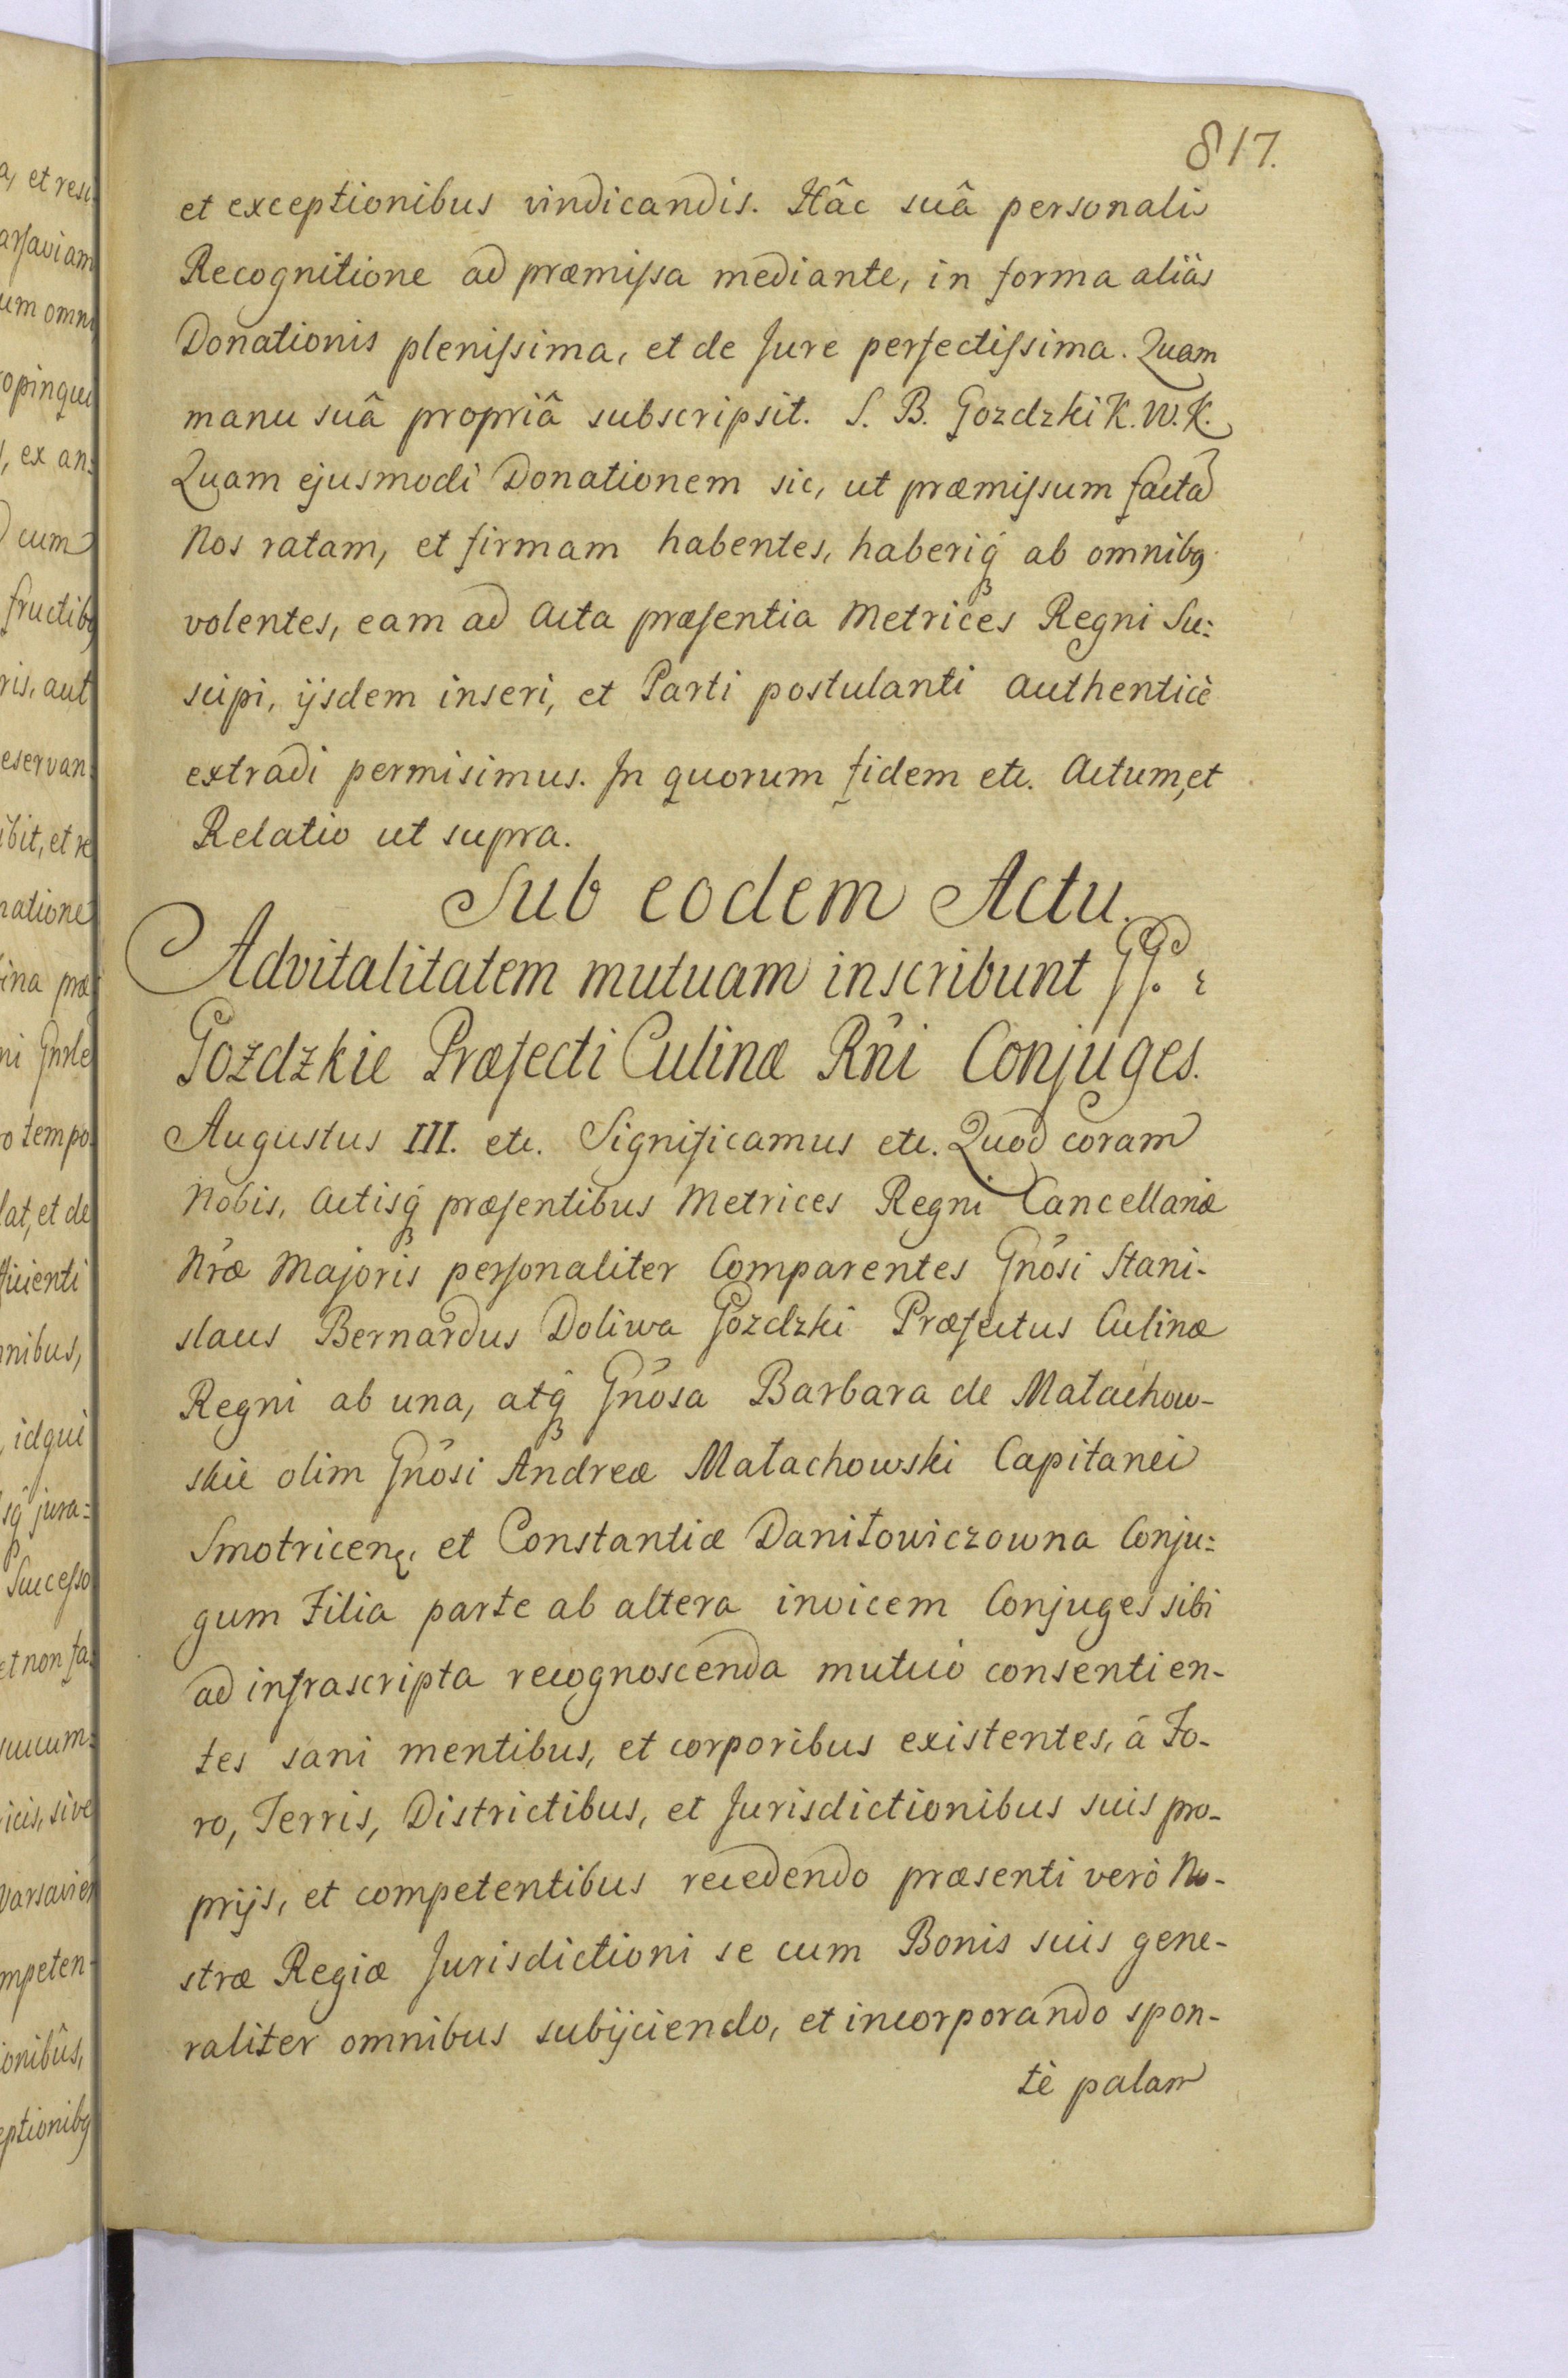 817.
et exceptionibus vindicandis. Hâc suâ personali
Recognitione ad præmissa mediante, in forma aliàs
Donationis plenissima, et de Jure perfectissima. Quam
manu suâ propriâ subscripsit. S. B. Gozdzki K. W. K.
Quam ejusmodi Donationem sic, ut præmissum factã
Nos ratam, et firmam habentes, haberiq́ ab omnibꝯ
volentes, eam ad Acta præsentia Metrices Regni Su:
scipi, ijsdem inseri, et Parti postulanti authenticè
extradi permisimus. In quorum fidem etc. Actum, et
Relatio ut supra.
Sub eodem Actu.
Advitalitatem mutuam inscribunt GG.
Gozdzkie Præfecti Culinæ Rñi Conjuges.
Augustus III. etc. Significamus etc. Quod coram
Nobis, Actisq́ præsentibus Metrices Regni Cancellariæ
Nr̃æ Majoris personaliter Comparentes Gñosi Stani-
slaus Bernardus Doliwa Gozdzki Præfectus Culinæ
Regni ab una, atq́ Gñosa Barbara de Małachow-
skie olim Gñosi Andreæ Małachowski Capitanei
Smotricen, et Constantiæ Daniłowiczowna Conju:
gum Filia parte ab altera invicem Conjuges sibi
ad infrascripta recognoscenda mutuò consentien-
tes sani mentibus, et corporibus existentes, à Fo-
ro, Terris, Districtibus, et Jurisdictionibus suis pro-
prijs, et competentibus recedendo præsenti verò No-
stræ Regiæ Jurisdictioni se cum Bonis suis gene-
raliter omnibus subijciendo, et incorporando spon-
tè palam